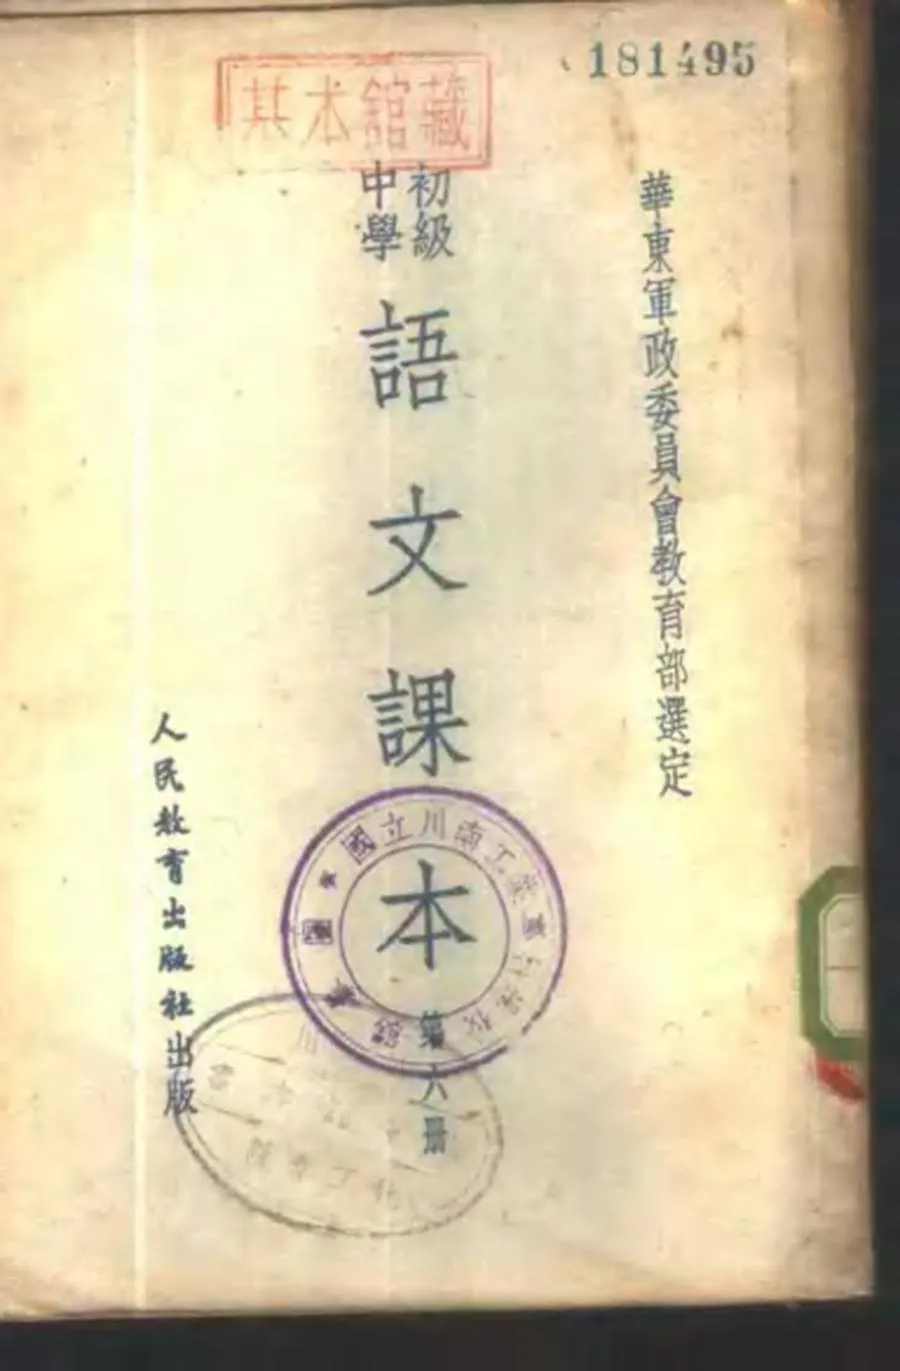 181495
藏館本基
華東軍政委員會教育部選定
初級
中學
語文課本
第六册
人民教育出版社出版
國立川南工業專科學校
圖書館